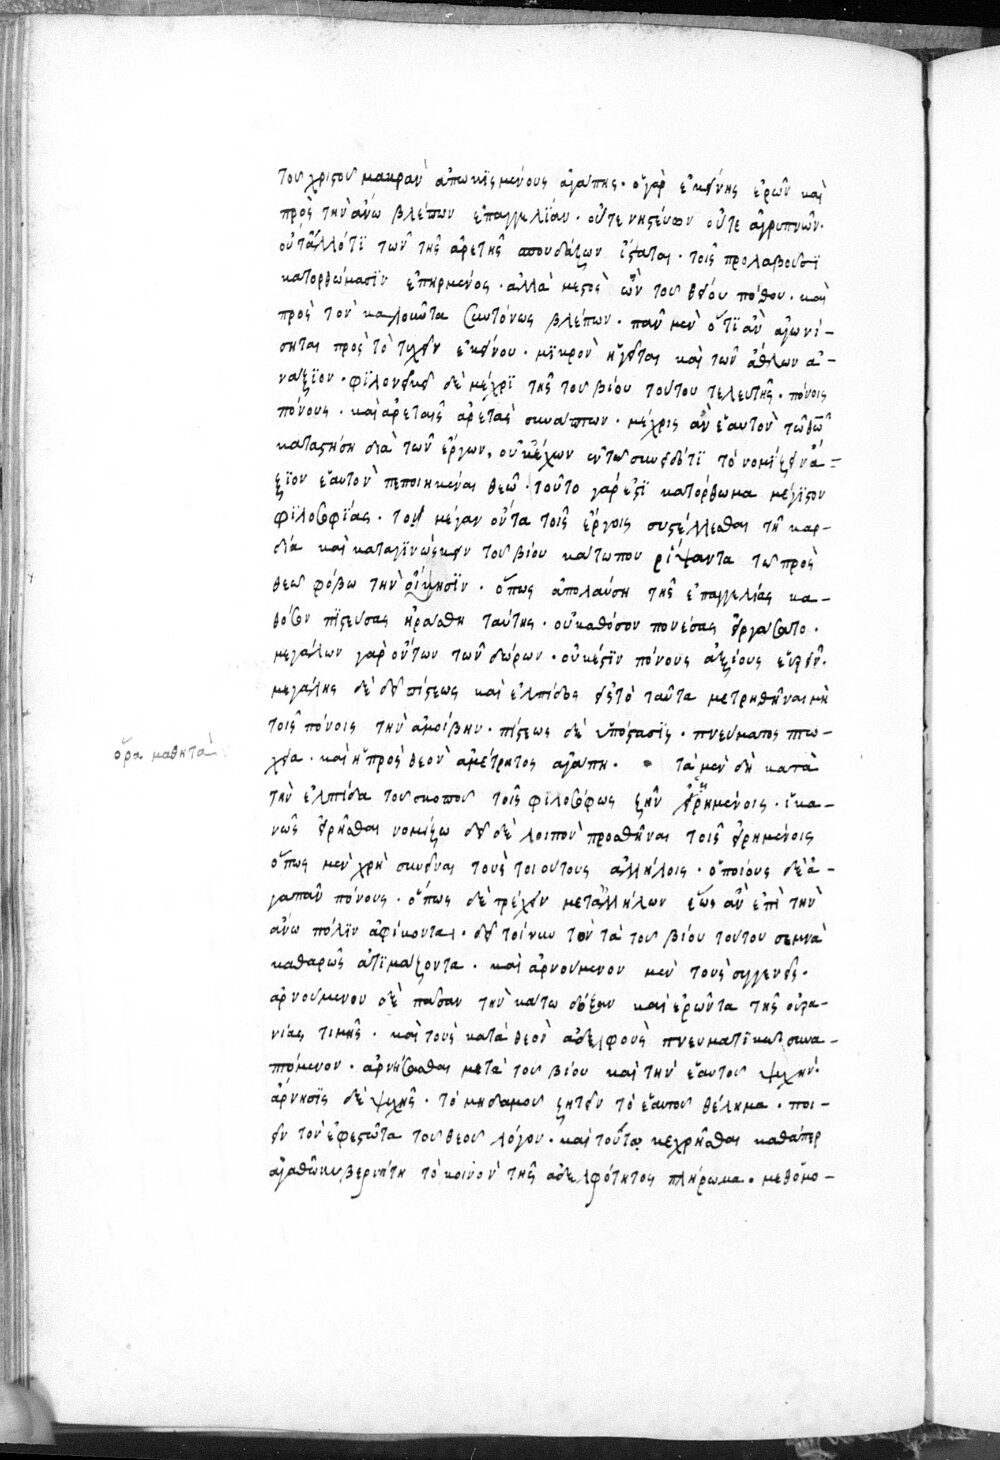 τοῦ χριστοῦ μακρὰν ἀπωκισμένους ἀγάπης· ὁ γὰρ ἐκείνης ἐρῶν καὶ
πρὸς τὴν ἄνω βλέπων ἐπαγγελίαν· οὔτε νηστεύων οὔτε ἀγρυπνῶν·
οὔτ' ἄλλό τι τῶν τῆς ἀρετῆς σπουδάζων ἵσταται· τοῖς προλαβοῦσι
κατορθώμασιν ἐπηρμένος· ἀλλὰ μεστὸς ὢν τοῦ θείου πόθου· καὶ
πρὸς τὸν καλοῦντα συντόνως βλέπων· πᾶν μὲν ὅτι ἂν ἀγωνί-
σηται πρὸς τὸ τυχεῖν ἐκείνου· μικρὸν ἡγεῖται καὶ τῶν ἄθλων ἀ-
νάξιον· φιλονεικεῖ δὲ μέχρι τῆς τοῦ βίου τούτου τελευτῆς· πόνοις
πόνους· καὶ ἀρεταῖς ἀρετὰς συνάπτων· μέχρις ἂν ἑαυτὸν τῷ θῶ
καταστήση διὰ τῶν ἔργων, οὐκ ἔχων ἐν τῶ συνειδότι τὸ νομίζειν ἄ-
ξιον ἑαυτὸν πεποιηκέναι θεῶ· τοῦτο γάρ ἐστι κατόρθωμα μέγιστον
φιλοσοφίας· τὸν μέγαν ὄντα τοῖς ἔργοις συστέλλεσθαι τῆ καρ-
δία καὶ καταγινώσκειν τοῦ βίου κάτω που ῥίψαντα τῶ πρὸς
θεοῦ φόβω τὴν οἴησιν· ὅπως ἀπολαύση τῆς ἐπαγγελίας κα-
θόσον πιστεύσας ἠράσθη ταύτης· οὐ καθόσον πονέσας εἰργάσατο·
μεγάλων γὰρ ὄντων τῶν δώρων· οὐκ ἔστιν πόνους ἀξίους εὑρεῖν·
μεγάλης δὲ δεῖ πίστεως καὶ ἐλπίδος ὥστε ταῦτα μετρηθῆναι μὴ
τοῖς πόνοις τὴν ἀμοίβην· πίστεως δὲ ὑπόστασις· πνεύματος πτω-
χεία· καὶ ἡ πρὸς θεὸν ἀμέτρητος ἀγάπη· τὰ μὲν δὴ κατὰ
ὅρα μαθητὰ
τὴν ἐλπίδα τοῦ σκοποῦ τοῖς φιλοσόφως ζῆν ἡρημένοις· ἱκα-
νῶς εἰρῆσθαι νομίζω δεῖ δὲ λοιπὸν προσθῆναι τοῖς εἰρημένοις
ὅπως μὲν χρὴ συνεῖναι τοὺς τοιούτους ἀλλήλοις· ὁποίους δὲ ἀ-
γαπᾶν πόνους· ὅπως δὲ τρέχειν μετ' ἀλλήλων ἕως ἂν ἐπὶ τὴν
ἄνω πόλιν ἀφίκονται· δεῖ τοίνυν τὸν τὰ τοῦ βίου τούτου σεμνὰ
καθαρῶς ἀτιμάζοντα· καὶ ἀρνούμενον μὲν τοὺς συγγενεῖς·
ἀρνούμενου δὲ πᾶσαν τὴν κάτω δόξαν καὶ ἐρῶντα τῆς οὐρα-
νίας τιμῆς· καὶ τοὺς κατὰ θεὸν ἀδελφοὺς πνευματικῶς συνα-
πτόμενον· ἀρνήσασθαι μετὰ τοῦ βίου καὶ τὴν ἑαυτοῦ ψυχήν·
ἄρνησις δὲ ψυχῆς· τὸ μηδαμοῦ ζητεῖν τὸ ἑαυτοῦ θέλημα· ποι-
εῖν τὸν ἐφεστῶτα τοῦ θεοῦ λόγον· καὶ τούτω κεχρῆσθαι καθάπερ
ἀγαθῶ κυβερνήτη τὸ κοινὸν τῆς ἀδελφότητος πλήρωμα· μεθ' ὁμο-